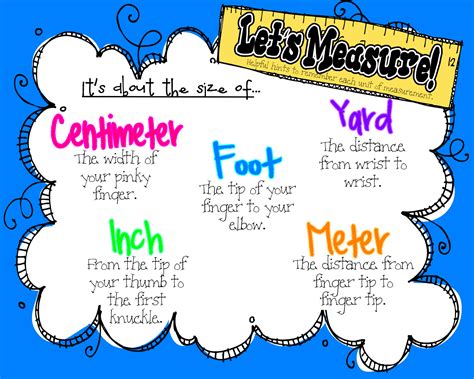 Let's Measure!
Helpful hints to remember each unit of measurement.
12
It's about the size of...
Centimeter
The width of
your pinky
finger.
Foot
The tip of your
finger to your
elbow.
Yard
The distance
from wrist to
wrist.
Inch
From the tip of
your thumb to
the first
knuckle.
Meter
The distance from
finger tip to
finger tip.